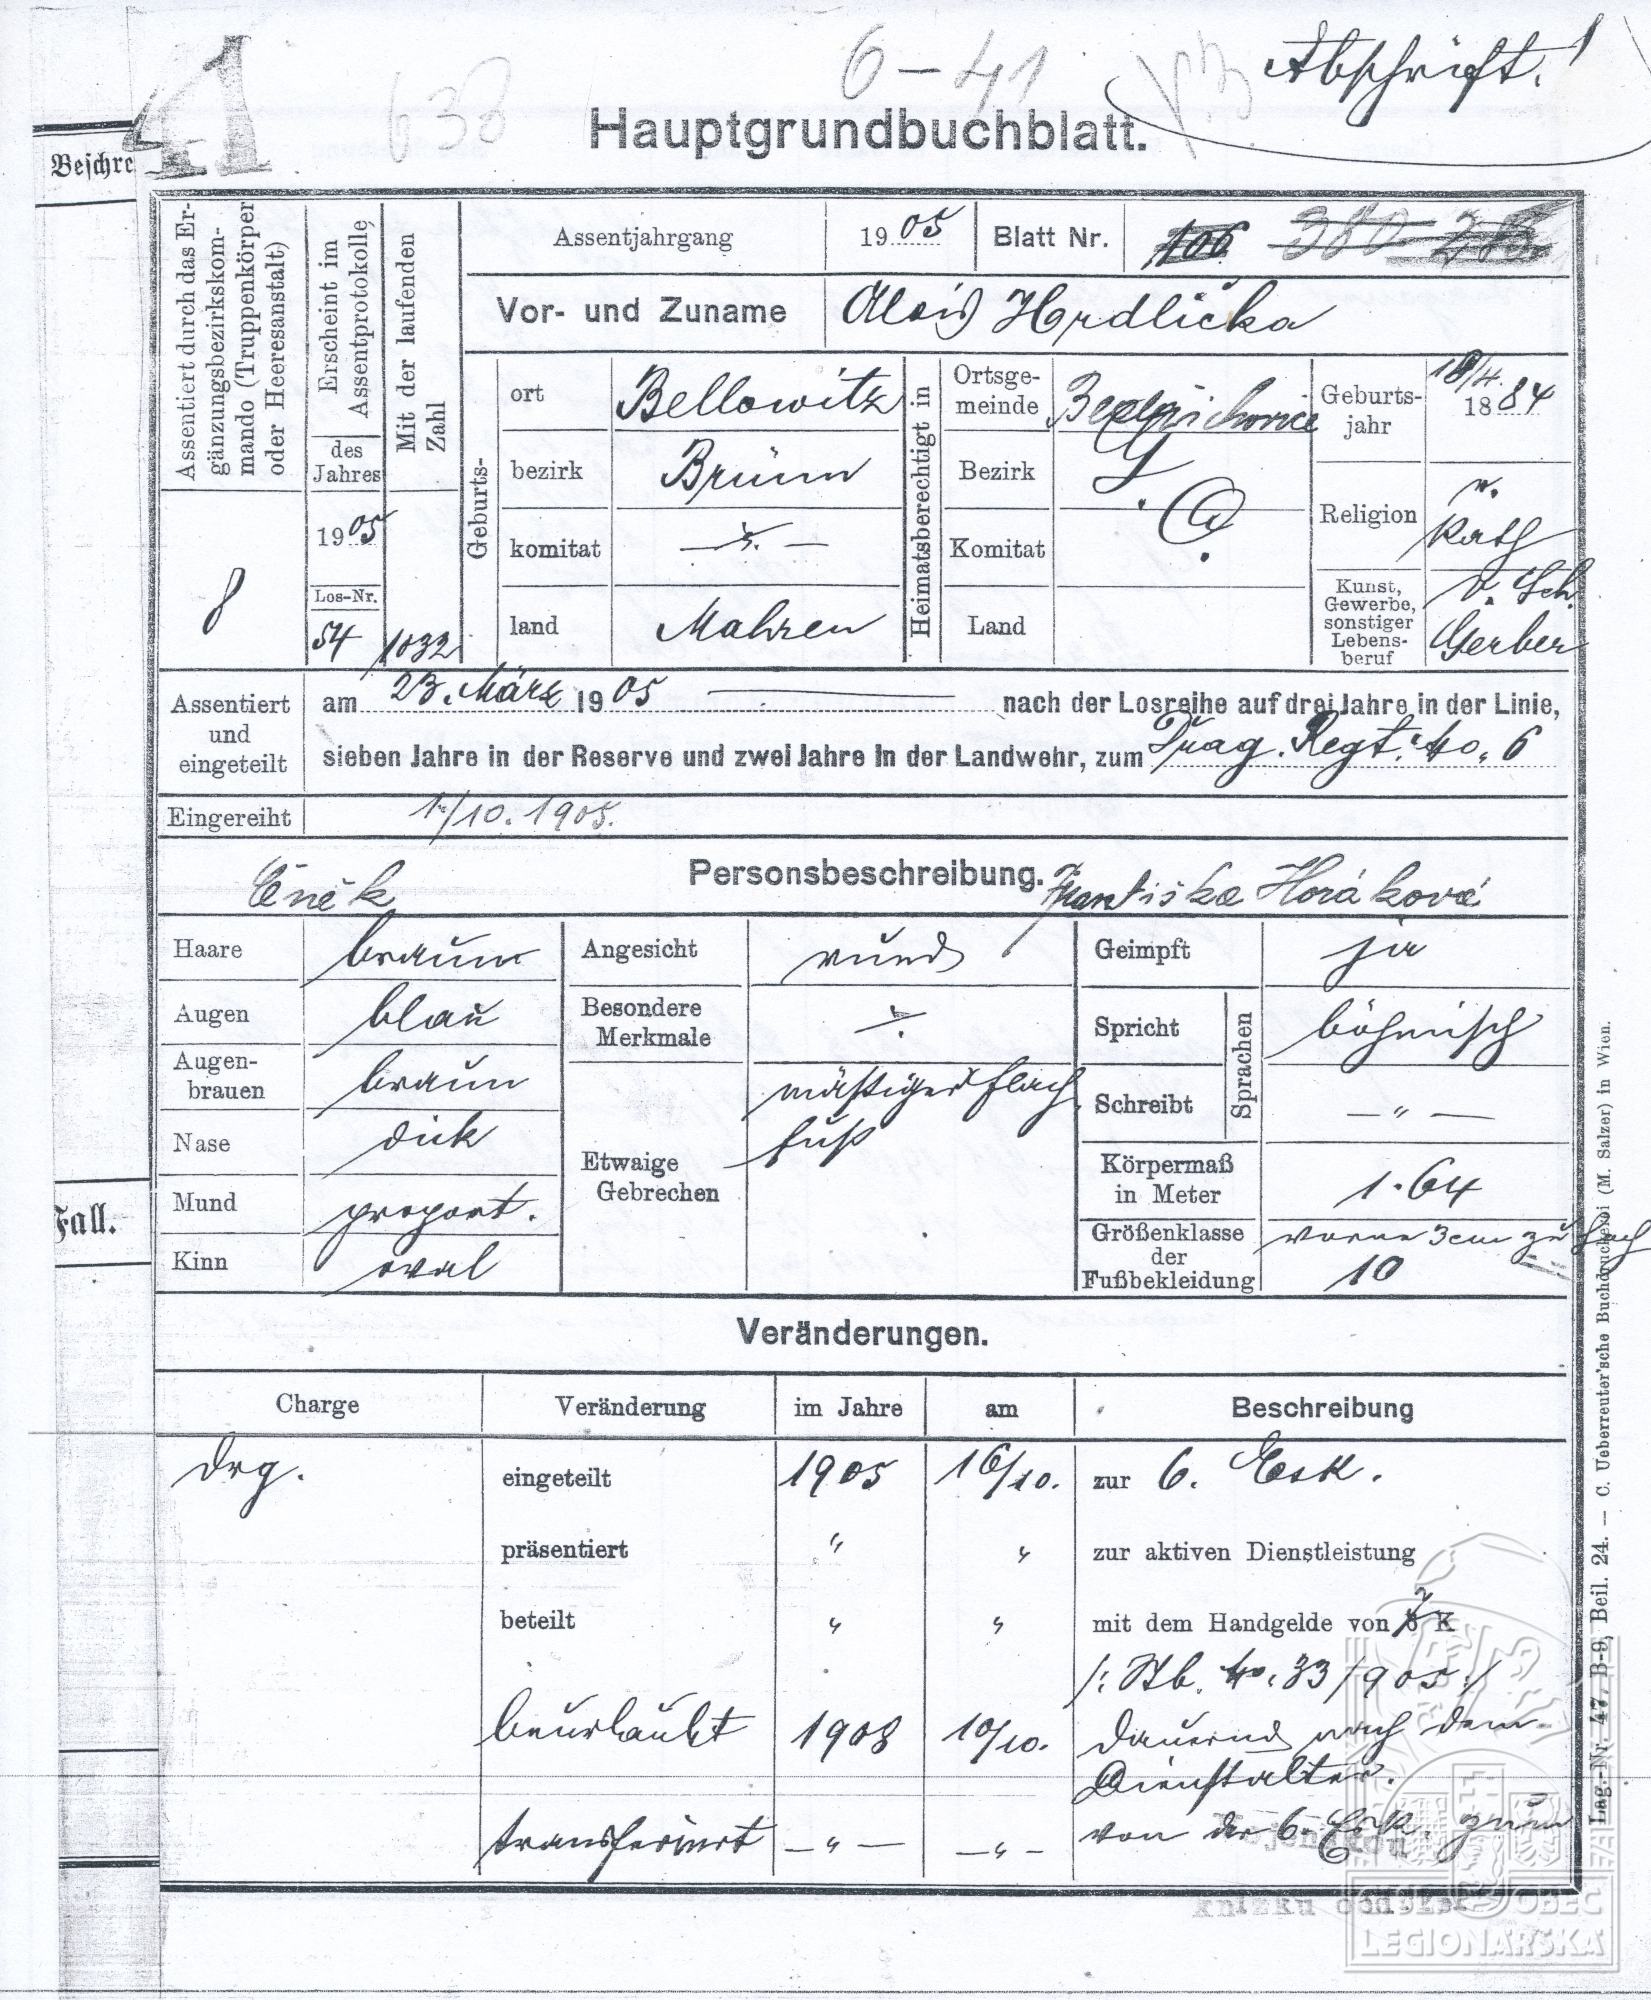 1
633
6-41
Abschrift!
Hauptgrundbuchblatt.
Beschre
Assentiert durch das Er-
gänzungsbezirkskom-
mando (Truppenkörper
oder Heeresanstalt)
8
Erscheint im
Assentprotokolle
des
Jahres
1905
Los-Nr.
54
Mit der laufenden
Zahl
1032
Assentjahrgang 1905 Blatt Nr. 106 380
Vor- und Zuname Alois Hrdlička
Geburts-
ort Bellowitz
bezirk Brünn
komitat
land Mahren
Heimatsberechtigt in
Ortsge-
meinde
Bezirk
Komitat
Land
Geburts-
jahr
18/4.
1884
Religion r.
Kath
Kunst,
Gewerbe,
sonstiger
Lebens-
beruf
Gerber
Assentiert
und
eingeteilt
am 23. März 1905 nach der Losreihe auf drei Jahre in der Linie,
sieben Jahre in der Reserve und zwei Jahre in der Landwehr, zum Drag. Regt. No. 6
Eingereiht 1./10. 1905.
Čeněk Personsbeschreibung. Františka Horáková
Haare braun
Augen blau
Augen-
brauen braun
Nase dick
Mund proport.
Kinn oval
Angesicht rund
Besondere
Merkmale ÷
Etwaige
Gebrechen
mäßiger Flach
fuß
Geimpft ja
Spricht
Schreibt
Sprachen
böhmisch
— " —
Körpermaß
in Meter 1.64
Größenklasse
der
Fußbekleidung
vorne 3cm zu hoch
10
Veränderungen.
Charge Veränderung im Jahre am Beschreibung
Drg. eingeteilt 1905 16/10. zur 6. Esk.
präsentiert " " zur aktiven Dienstleistung
beteilt " " mit dem Handgelde von 2 K
/: Stb. No. 33/905 :/
beurlaubt 1908 10/10. dauernd nach dem
Dienstalter.
transferiert — " — — " — von der 6. Esk. zum
Fall.
Lag.-Nr. 47, B-9, Beil. 24. — C. Ueberreuter'sche Buchdruckerei (M. Salzer) in Wien.
OBEC
LEGIONÁŘSKÁ